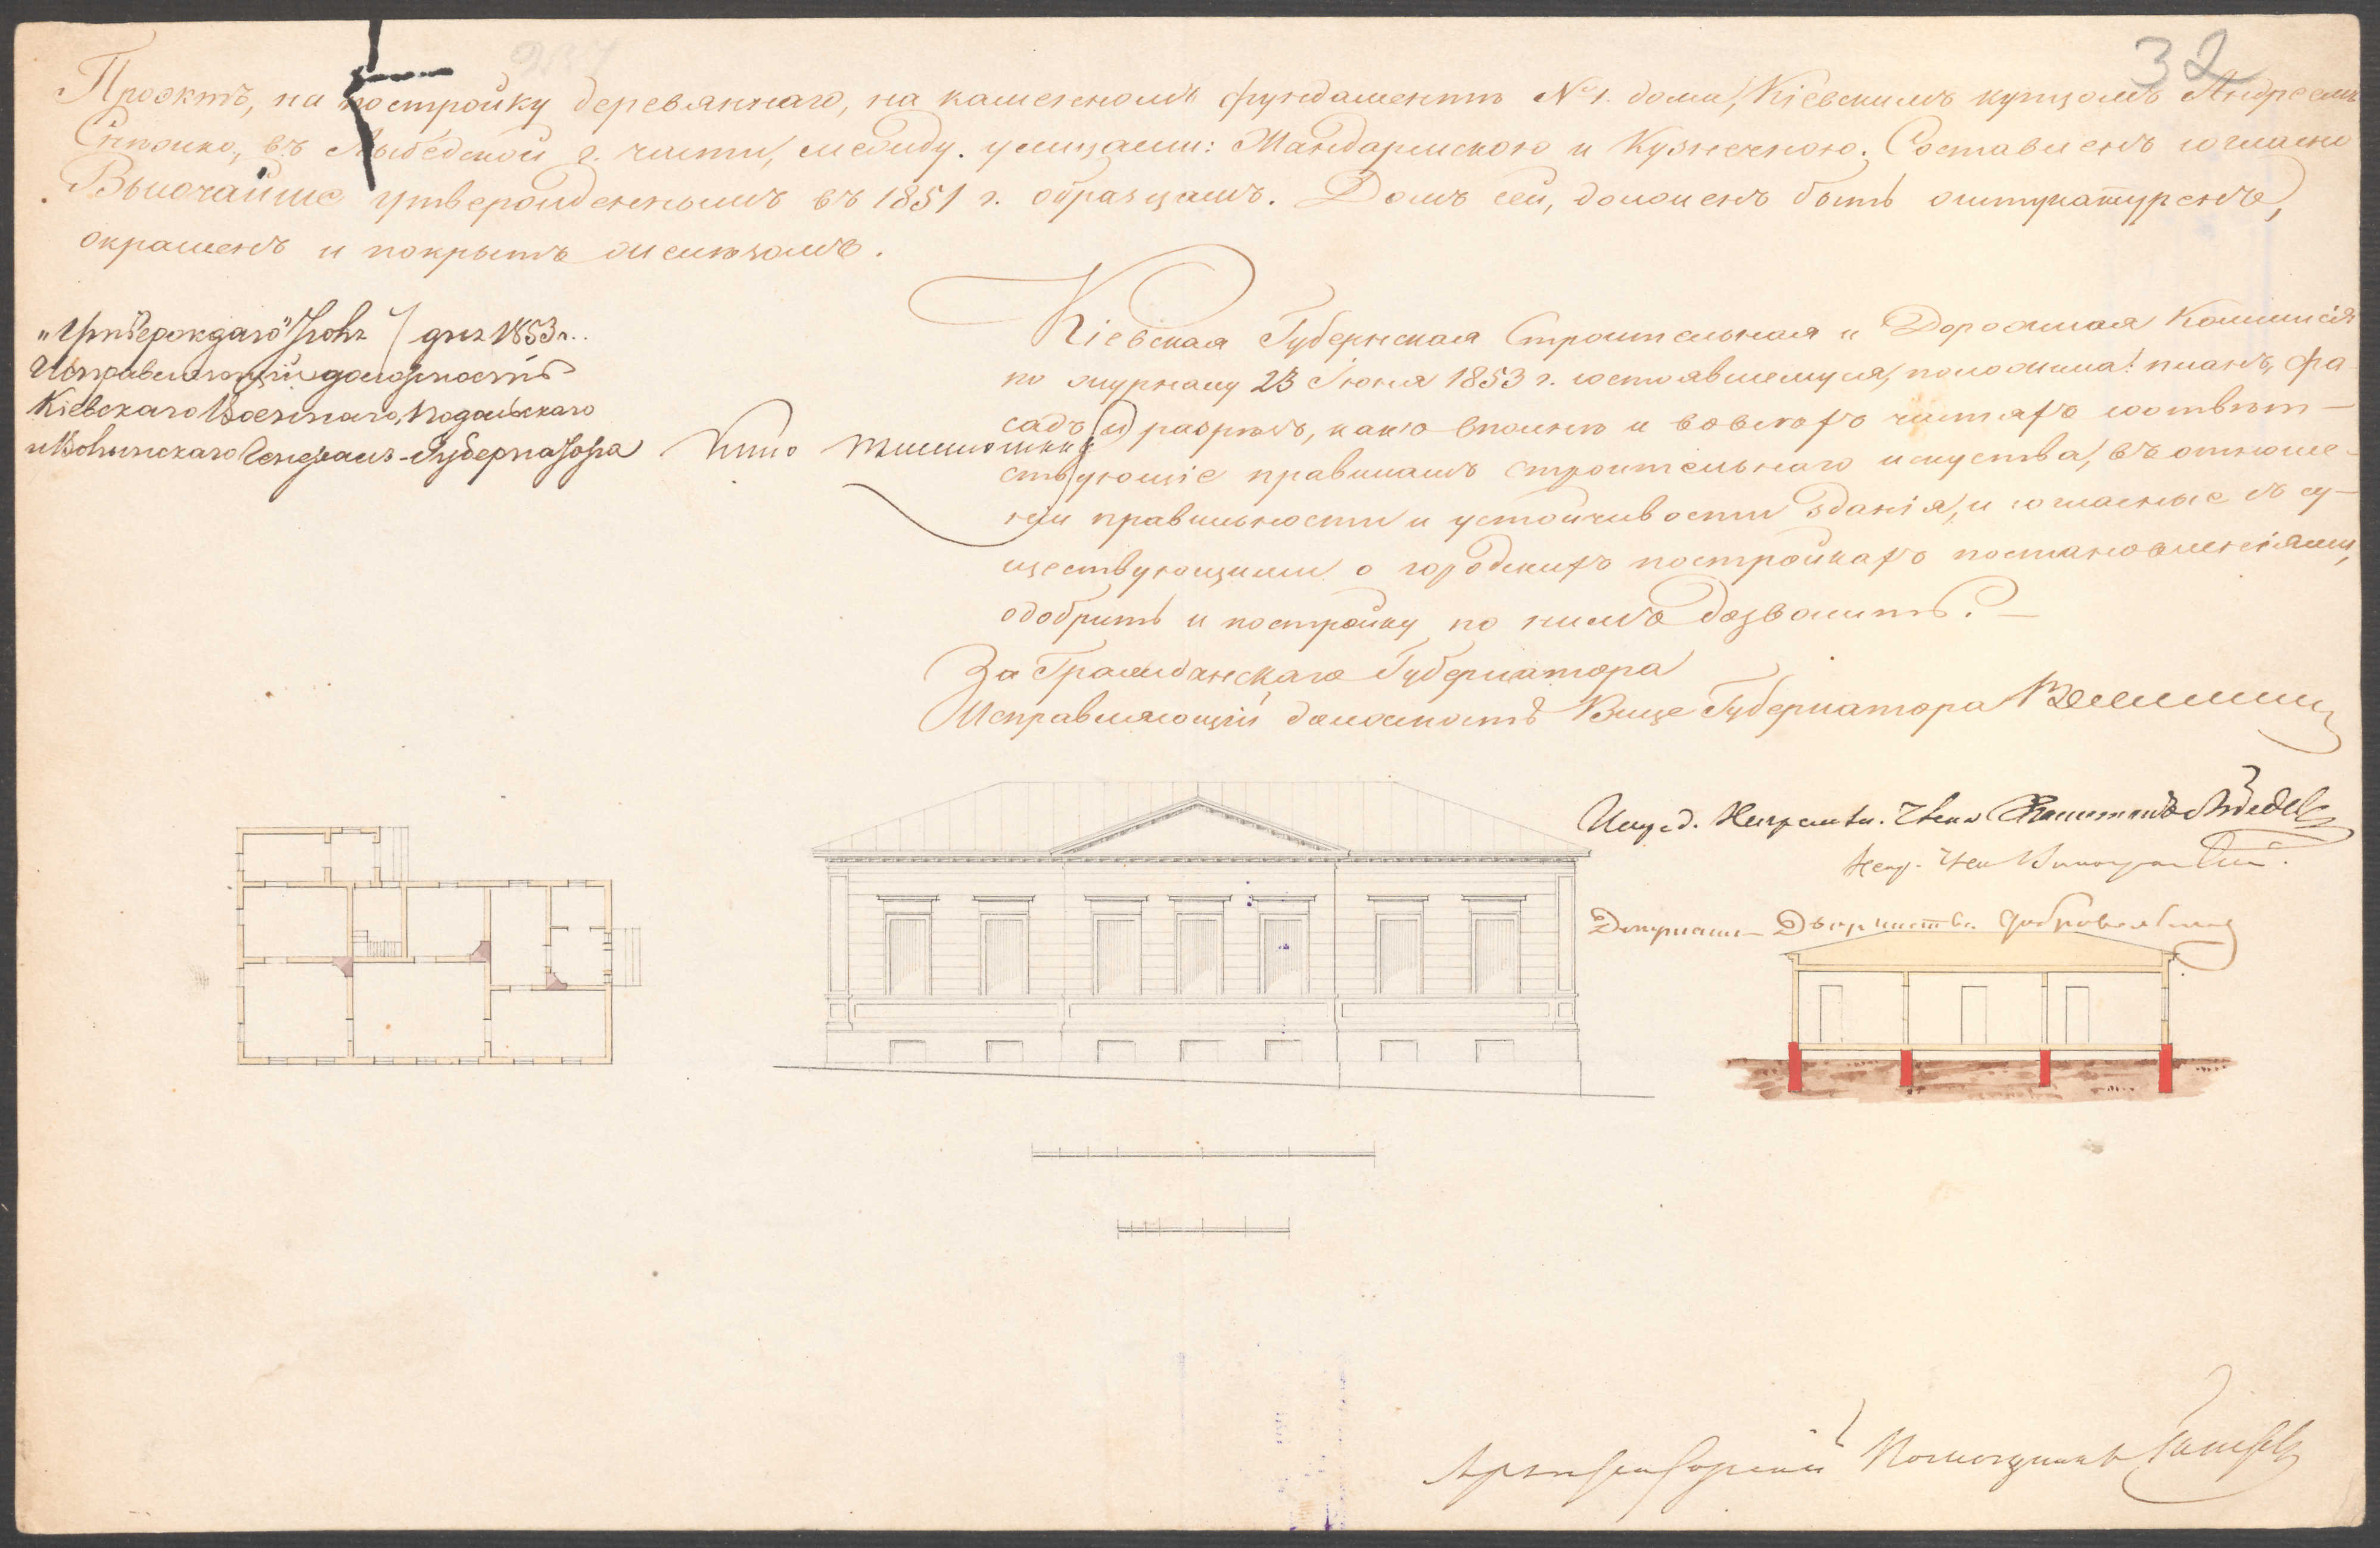 32
Проэктъ, на постройку деревяннаго, на каменномъ фундаментѣ № 1. дома, Кіевскимъ купцомъ Андреемъ
въ Лыбедской г. части, между улицами: Жандармскою и Кузнечною. Составленъ согласно
Высочайше утвержденнымъ въ 1851 г. образцамъ. Домъ сей, долженъ быть оштукатуренъ,
окрашенъ и покрытъ желѣзомъ.
„Утверждаю" Іюля / дня 1853 г.
Исправляющій должность
Кіевскаго Военнаго, Подольскаго
и Волынскаго Генералъ-Губернатора
Кіевская Губернская Строительная и Дорожная Коммисія
по журналу 23 Іюня 1853 г. состоявшемуся, положила: планъ, фа-
садъ и разрѣзъ, какъ вполнѣ и во всѣхъ частяхъ соотвѣт-
ствующіе правиламъ строительнаго искуства, въ отноше-
ніи правильности и устойчивости зданія, и согласные съ су-
ществующими о городскихъ постройкахъ постановленіями,
одобрить и постройку по нимъ дозволить.
За Гражданскаго Губернатора
Исправляющій должность Вице Губернатора
Члена
Член
Дворянства
Архитекторскій Помощникъ